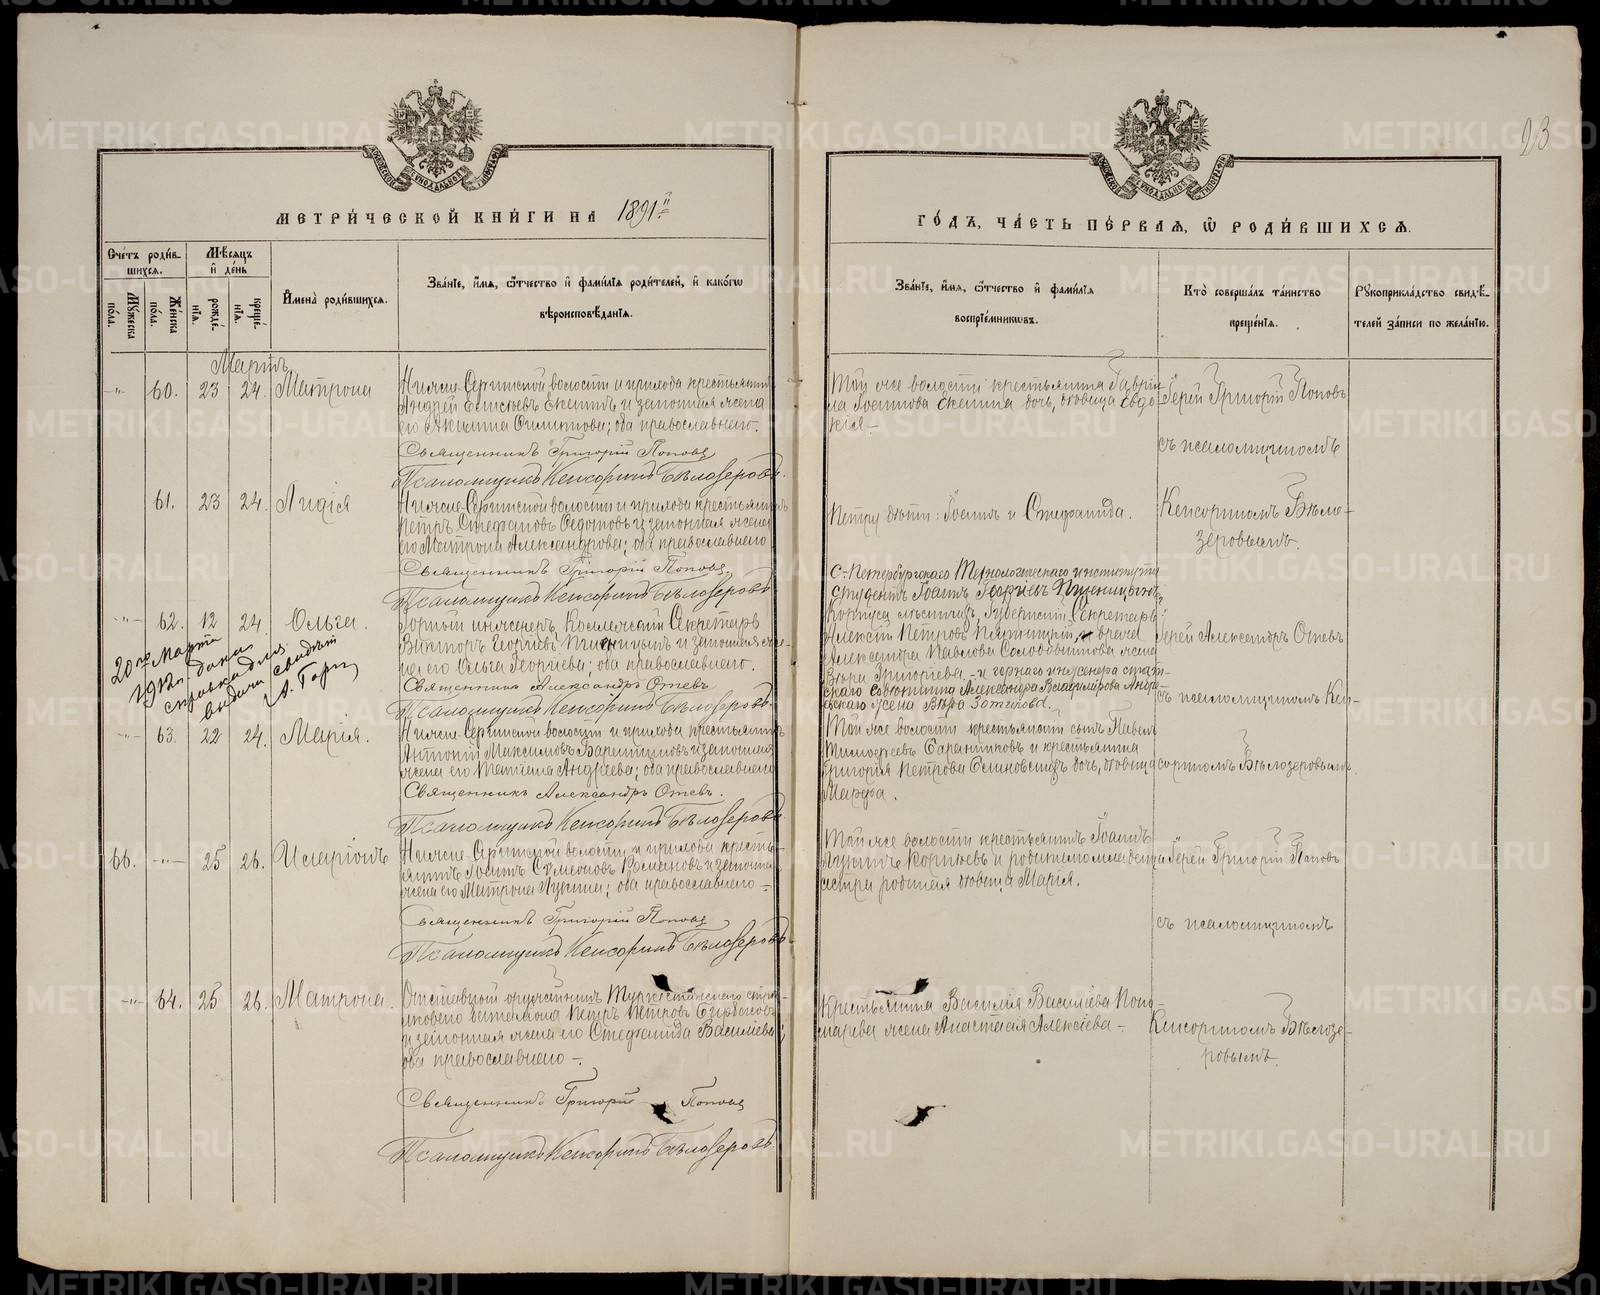 МЕТРИ́ЧЕСКОЙ КНИ́ГИ НА 1891 й
Сче́тъ роди́вшихся.
Му́жеска по́ла.
Же́нска по́ла.
Мѣ́сяцъ и҆ де́нь
рожде́нїя.
креще́нїя.
И҆мена̀ роди́вшихся.
Зва́нїе, и҆́мя, ѻ҆́тчество и҆ фами́лїя роди́телей, и҆ како́гѡ
вѣроисповѣ́данїя.
Мартъ
-"- 60. 23 24. Матрона
Нижне-Сергинской волости и прихода крестьянинъ
Андрей Елисѣевъ Екатин и законная жена
его Акилина Филиппова; оба православнаго.
Священникъ Григорій Поповъ
Псаломщикъ Кенсоринъ Бѣлозеровъ.
61. 23 24. Лидія
Нижне-Сергинской волости и прихода крестьянинъ
Петръ Стефановъ Федотовъ и законная жена
его Матрона Александрова; оба православнаго
Священникъ Григорій Поповъ.
Псаломщикъ Кенсоринъ Бѣлозеровъ
-"- 62. 12 24. Ольга.
Горный инженеръ, Коллежскій Секретарь
Викторъ Георгіевъ Пшеницынъ и законная же-
на его Ольга Георгіева; оба православнаго.
Священникъ Александръ Отевъ
Псаломщикъ Кенсоринъ Бѣлозеровъ.
20го Марта
1912 г. дана
справка для
выдачи свидѣт
-"- 63. 22 24. Марія.
Нижне-Сергинской волости и прихода крестьянинъ
Антоній Максимовъ и законная
жена его Татіана Андреева; оба православнаго
Священникъ Александръ Отевъ.
Псаломщикъ Кенсоринъ Бѣлозеровъ.
66. -"- 25 26. Иларіонъ
Нижне-Сергинской волости и прихода кресть-
янинъ Іоаннъ Сѵмеоновъ Романовъ и законная
жена его Матрона Лукина; оба православнаго -
Священникъ Григорій Поповъ
Псаломщикъ Кенсоринъ Бѣлозеровъ
-"- 64. 25 26. Матрона.
Отставной оружейникъ Туркестанскаго стрѣ-
лковаго баталіона Петръ Петровъ
и законная жена его Стефанида Васильева;
оба православнаго -.
Священникъ Григорій Поповъ
Псаломщикъ Кенсоринъ Бѣлозеровъ.
23
ГО́ДЪ, ЧА́СТЬ ПЕ́РВАЯ, Ѽ РОДИ́ВШИХСЯ.
Зва́нїе, и҆́мя, ѻ҆́тчество и҆ фами́лїя
воспрїе́мникѡвъ.
Кто̀ соверша́лъ та́инство
креще́нїя.
Рꙋкоприкла́дство свидѣ́-
телей за́писи по жела́нїю.
Той же волости крестьянина Гаврі-
ла Іоаннова Екатина дочь, дѣвица Евдо-
кія -
Іерей Григорій Поповъ
съ псаломщикомъ
Петру дѣти: Іоаннъ и Стефанида.
Кенсориномъ Бѣло-
зеровымъ.
С.-Петербургскаго Технологическаго института
студентъ Іоаннъ Георгіевъ Пшеницынъ,
Корпуса лѣсничихъ, Губернскій Секретарь
Алексѣй Петровъ врача
Александра Павлова жена
Вѣра Григорьева - и горнаго инженера стат-
скаго совѣтника Александра Владимірова
жена Вѣра Зотикова.
Іерей Александръ Отевъ
съ псаломщикомъ Кен-
Той же волости крестьянскій сынъ Павелъ
Тимоѳеевъ Баранниковъ и крестьянина
Григорія Петрова дочь, дѣвица
Марѳа.
сориномъ Бѣлозеровымъ.
Той же волости крестьянинъ Іоаннъ
Лукинъ и родителю младенца
сестра родная дѣвица Марія.
Іерей Григорій Поповъ
съ псаломщикомъ
Крестьянина Василія Васильева Поно-
марева жена Анастасія Алексіева -
Кенсориномъ Бѣлозе-
ровымъ.
METRIKI.GASO-URAL.RU